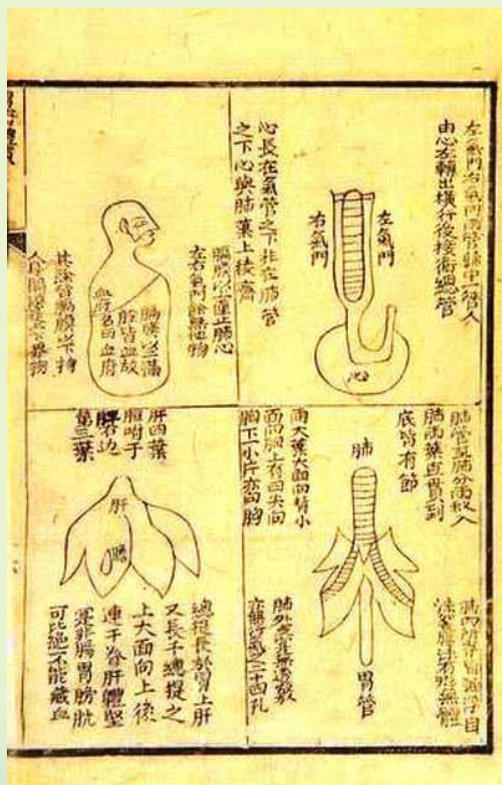 左氣門右氣門兩管歸中一管入
由心左轉出橫行後接衛總管
左氣門
右氣門
心
心長在氣管之下非在肺管
之下心與肺葉上稜齊
膈膜以上僅止肺心
左右氣門餘無他物
膈膜以上滿
腔皆血故
名曰血府
血府
其餘皆膈膜以下物
人身膈膜是上下界物
肺管至肺分兩杈入
肺兩葉直貫到
底皆有節
肺內所存皆輕浮白
沫如豆腐沫有形無體
肺
胃管
肺外皮實無透竅
亦無行氣二十四孔
兩大葉大面向背小
面向胸上有四尖向
胸下小片亦向胸
肝四葉
膽附于
肝右边
第二葉
肝
膽
總提長於胃上肝
又長于總提之
上大面向上後
連于脊肝體堅
實非腸胃膀胱
可比絕不能藏血